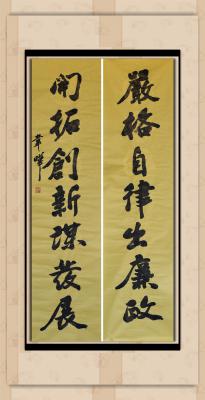 嚴格自律出廉政
開拓創新謀發展